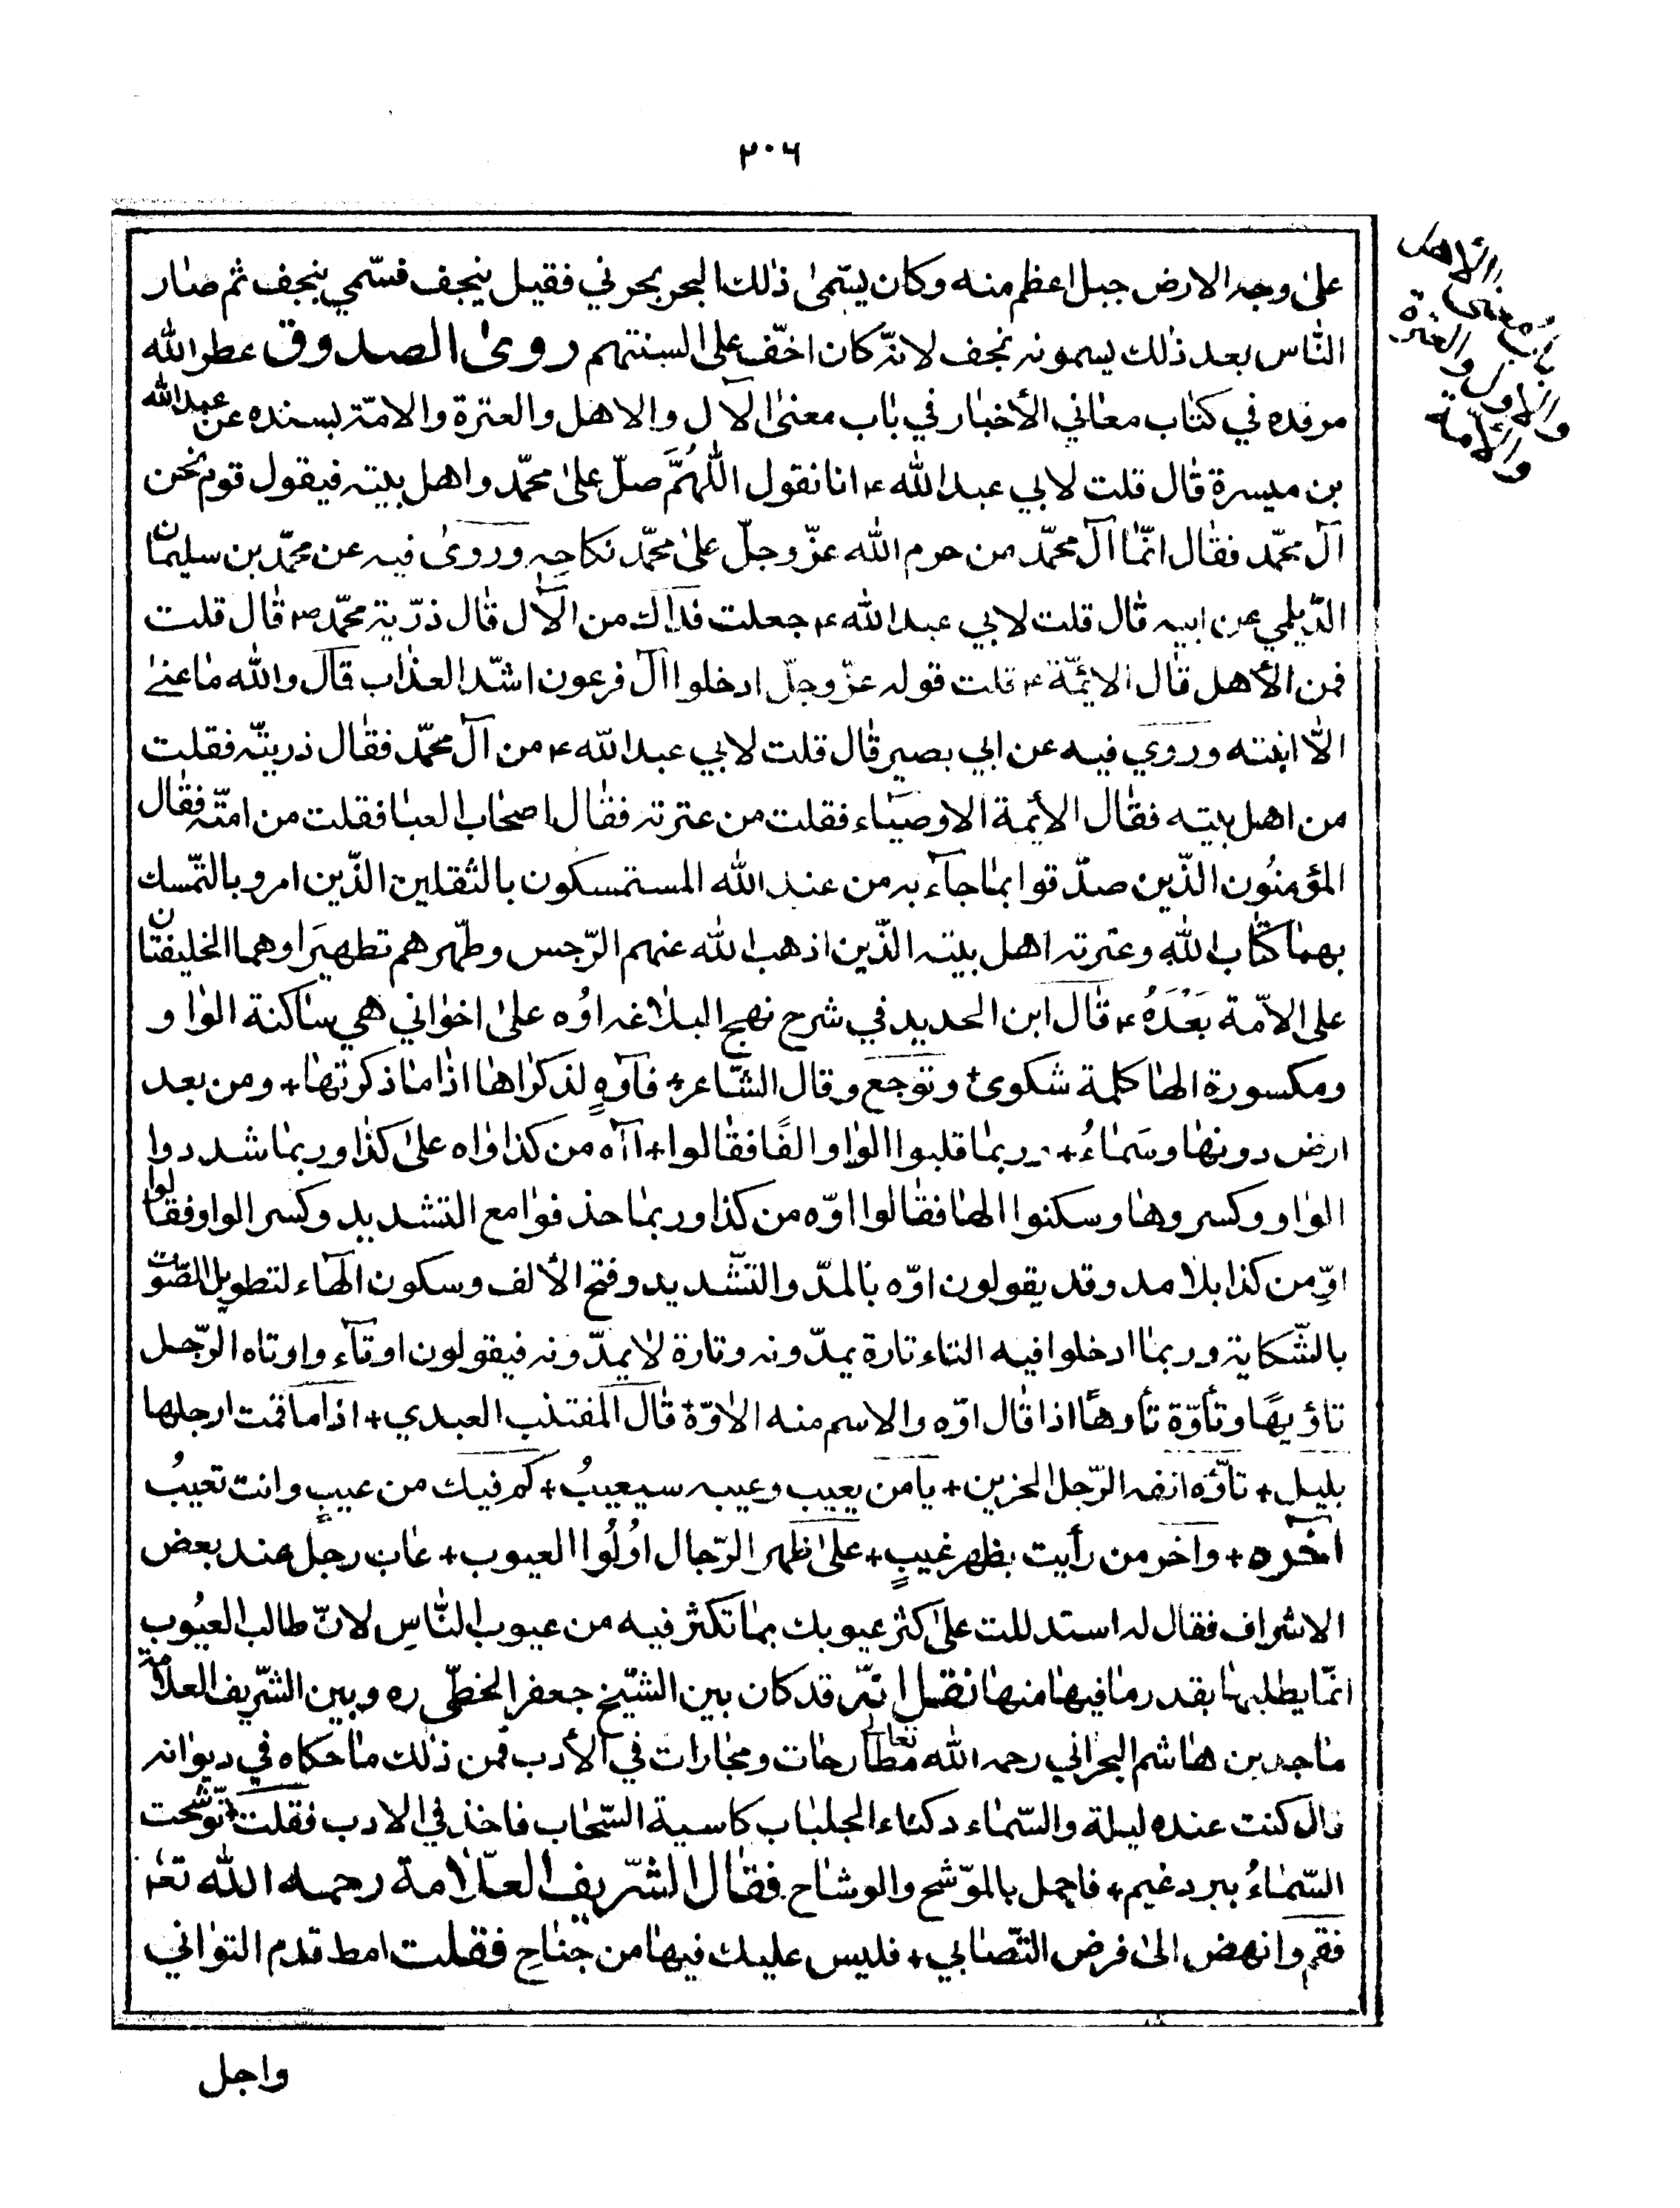 ٢٠٦
على وجه الارض جبل اعظم منه وكان يسمى ذلك البحر بحر ني فقيل نيجف فسمي بنجف ثم صار
الناس بعد ذلك يسمونه نجف لانه كان اخف على السنتهم روى الصدوق عطر الله
مرقده في كتاب معاني الأخبار في باب معنى الآل والاهل والعترة والامة بسنده عن عبدالله
بن ميسرة قال قلت لابي عبدالله ع انا نقول اللهم صل على محمد واهل بيته فيقول قوم نحن
آل محمد فقال انما آل محمد من حرم الله عز وجل على محمد نكاحه وروى فيه عن محمد بن سليمان
الديلمي عن ابيه قال قلت لابي عبدالله ع جعلت فداك من الآل قال ذرية محمد ص قال قلت
فمن الأهل قال الائمة ع قلت قوله عز وجل ادخلوا آل فرعون اشد العذاب قال والله ما عنى
الا ابنته وروي فيه عن ابي بصير قال قلت لابي عبدالله ع من آل محمد فقال ذريته فقلت
من اهل بيته فقال الأيمة الاوصياء فقلت من عترته فقال اصحاب العبا فقلت من امته فقال
المؤمنون الذين صدقوا بما جآء به من عند الله المستمسكون بالثقلين الذين امروبالتمسك
بهما كتاب الله وعترته اهل بيته الذين اذهب الله عنهم الرجس وطهرهم تطهيرا وهما الخليفتان
على الامة بعده ع قال ابن الحديد في شرح نهج البلاغه اوه على اخواني هي ساكنة الواو
ومكسورة الها كلمة شكوى وتوجع وقال الشاعر+ فآوه لذكراها اذا ما ذكرتها+ ومن بعد
ارض دونها وسماء+ وربما قلبوا الواو الفا فقالوا+ آاه من كذا واه على كذا وربما شددوا
الواو وكسروها وسكنوا الها فقالوا اوه من كذا وربما حذفوا مع التشديد وكسر الواو فقالوا
او من كذا بلا مد وقد يقولون اوه بالمد والتشديد وفتح الألف وسكون الهاء لتطويل الصوت
بالشكاية وربما ادخلوا فيه التاء تارة يمدونه وتارة لا يمدونه فيقولون اوتآء واوتاه الرجل
تاؤيها وتأوة تأوها اذا قال اوه والاسم منه الاوة قال المفتذب العبدي+ اذا ما قمت ارجلها
بليل+ تاوه انفه الرجل الحزين+ يا من يعيب وعيبه سيعيب+ كم فيك من عيب وانت تعيب
آخره+ واخر من رأيت بظهر غيب+ على ظهر الرجال اولوا العيوب+ عاب رجل عند بعض
الاشراف فقال له استدللت على كثر عيوبك بما تكثر فيه من عيوب الناس لان طالب العيوب
انما يطلبها بقدر ما فيها منها نقل انه قد كان بين الشيخ جعفر الخطي ره وبين الشريف العلامة
ماجد بن هاشم البحراني رحمه الله تعالى مطارحات ومجارات في الأدب فمن ذلك ما حكاه في ديوانه
قال كنت عنده ليلة والسماء دكناء الجلباب كاسية السحاب فاخذ في الادب فقلت+ توشحت
السماء ببرد غيم+ فاجمل بالموشح والوشاح فقال الشريف العلامة رحمه الله تعا
فقم وانهض الى فرض التصابي+ فليس عليك فيها من جناح فقلت امط قدم التواني
باب معنى
الآل والاهل
والعترة
والأمة
واجل